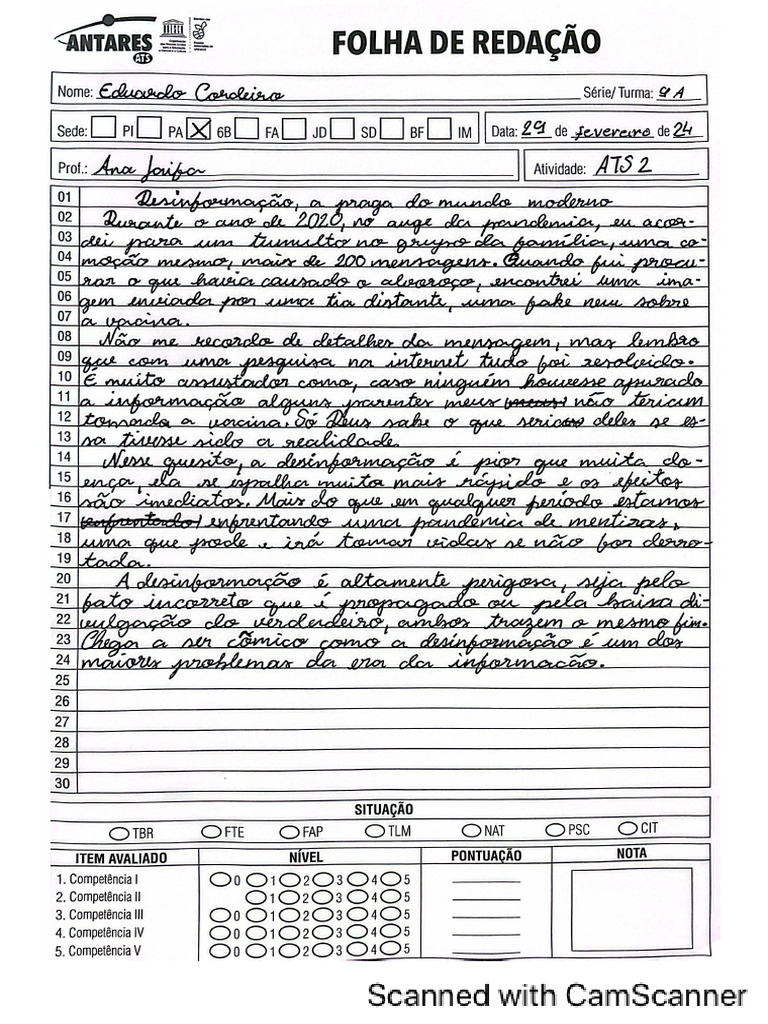 ANTARES
ATS
UNESCO
FOLHA DE REDAÇÃO
Nome: Eduardo Cordeiro Série/ Turma: 9A
Sede: PI PA X 6B FA JD SD BF IM Data: 29 de fevereiro de 24
Prof.: Ana Atividade: ATS 2
01 Desinformação, a praga do mundo moderno
02 Durante o ano de 2020, no auge da pandemia, eu acor-
03 dei para um tumulto no grupo da família, uma co-
04 moção mesmo, mais de 200 mensagens. Quando fui procu-
05 rar o que havia causado o alvoroço, encontrei uma ima-
06 gem enviada por uma tia distante, uma fake new sobre
07 a vacina.
08 Não me recordo de detalhes da mensagem, mas lembro
09 que com uma pesquisa na internet tudo foi resolvido.
10 É muito assustador como, caso ninguém houvesse apurado
11 a informação alguns parentes meus (meus) não teriam
12 tomado a vacina. Só Deus sabe o que seria deles se es-
13 sa tivesse sido a realidade.
14 Nesse quesito, a desinformação é pior que muita do-
15 ença, ela se espalha muito mais rápido e os efeitos
16 são imediatos. Mais do que em qualquer período estamos
17 (enfrentado) enfrentando uma pandemia de mentiras,
18 uma que pode e irá tomar vidas se não for derro-
19 tada.
20 A desinformação é altamente perigosa, seja pelo
21 fato incorreto que é propagado ou pela baixa di-
22 vulgação do verdadeiro, ambos trazem o mesmo fim.
23 Chega a ser cômico como a desinformação é um dos
24 maiores problemas da era da informação.
25
26
27
28
29
30
SITUAÇÃO
TBR FTE FAP TLM NAT PSC CIT
ITEM AVALIADO NÍVEL PONTUAÇÃO NOTA
1. Competência I 0 1 2 3 4 5
2. Competência II 1 2 3 4 5
3. Competência III 0 1 2 3 4 5
4. Competência IV 0 1 2 3 4 5
5. Competência V 0 1 2 3 4 5
Scanned with CamScanner